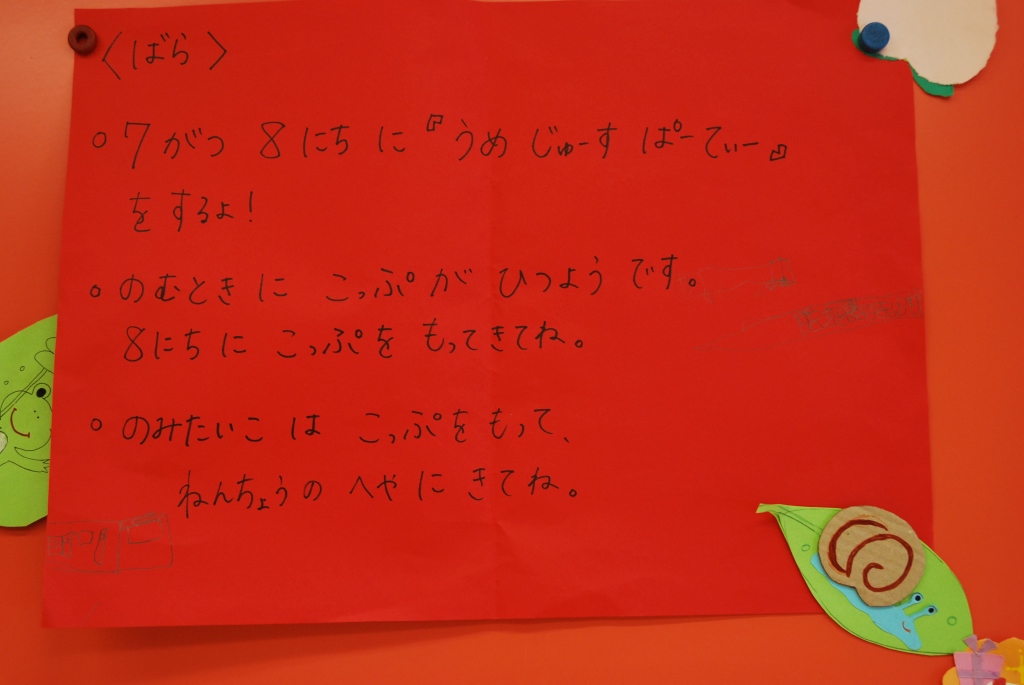 〈ばら〉
○ 7がつ 8にち に 『うめ じゅーす ぱーてぃー』
をするよ!
○ のむときに こっぷが ひつよう です。
8にちに こっぷを もってきてね。
○ のみたいこは こっぷをもって、
ねんちょうの へやに きてね。